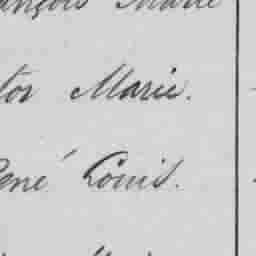 ançois Marie
tor Marie.
ené Louis.